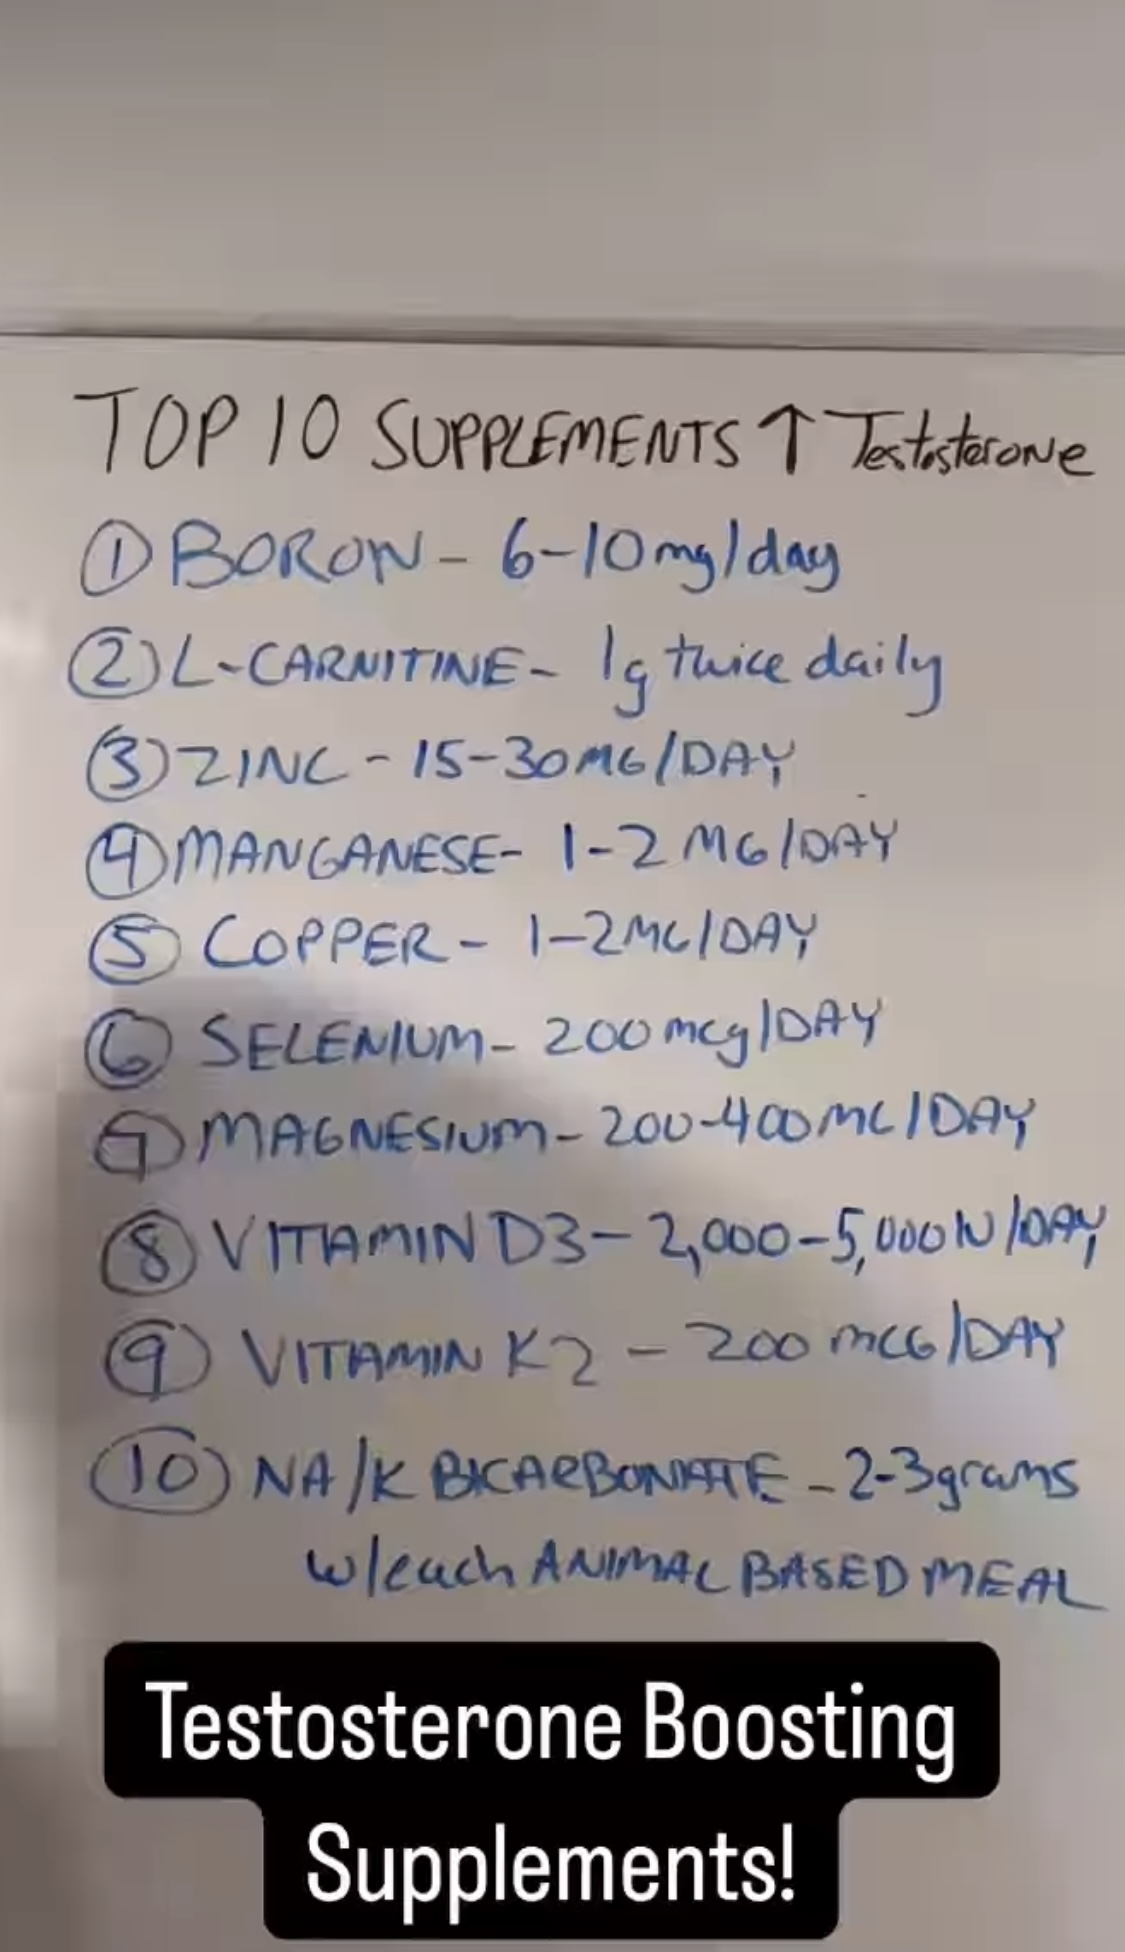 TOP 10 SUPPLEMENTS ↑ Testosterone
① BORON - 6-10mg/day
② L-CARNITINE - 1g twice daily
③ ZINC - 15-30MG/DAY
④ MANGANESE - 1-2 MG/DAY
⑤ COPPER - 1-2MG/DAY
⑥ SELENIUM - 200mcg/DAY
⑦ MAGNESIUM - 200-400MG/DAY
⑧ VITAMIN D3 - 2,000-5,000IU/DAY
⑨ VITAMIN K2 - 200 mcG/DAY
⑩ NA/K BICARBONATE - 2-3grams
w/each ANIMAL BASED MEAL
Testosterone Boosting
Supplements!